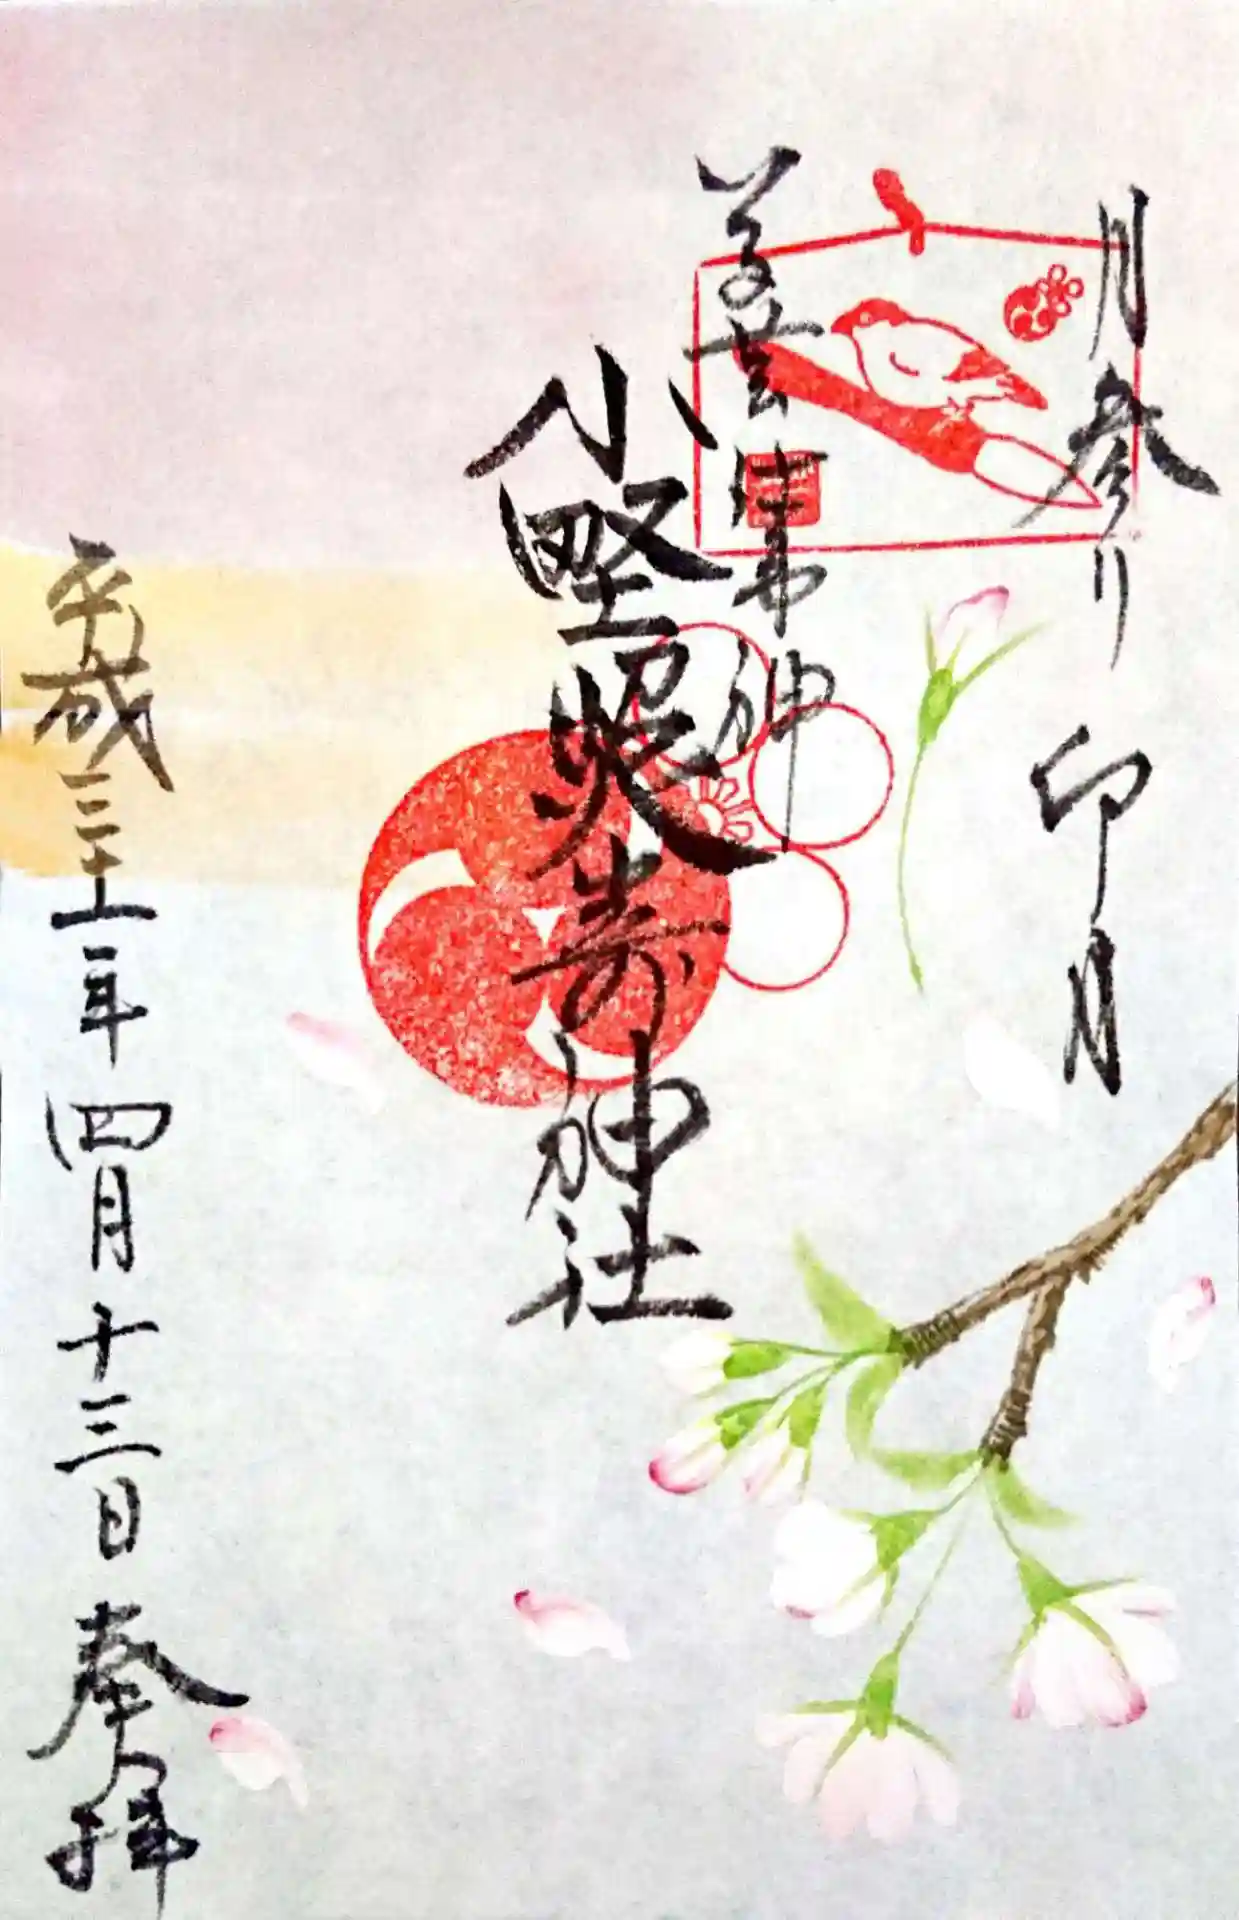 月参り 卯月
小野照崎神社
平成三十一年四月十三日 奉拝